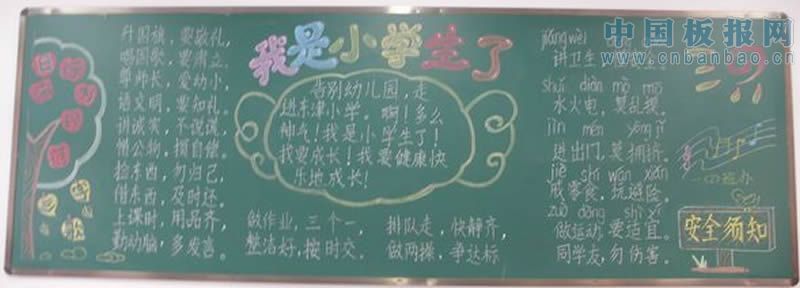 我是小学生了
升国旗,要敬礼,
唱国歌,要肃立,
尊师长,爱幼小,
语文明,要知礼。
讲诚实,不说谎,
借公物,损自偿。
捡东西,勿归己,
借东西,及时还,
上课时,用品齐,
勤动脑,多发言。
告别幼儿园,走
进东津小学。啊!多么
神气!我是小学生了!
我要成长!我要健康快
乐地成长!
做作业,三个一,
整洁好,按时交。
排队走,快静齐,
做两操,争达标
jiǎng wèi
讲卫生
shuǐ diàn mō
水火电,莫乱摸,
jìn mén yōng jǐ
进出门,莫拥挤。
jiè shí wán xiǎn
戒零食,玩避险。
zuò dòng shì yí
做运动,要适宜。
同学友,勿伤害。
安全须知
中国板报网
www.cnbanbao.cn